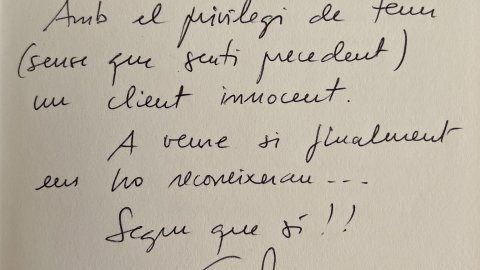 Amb el privilegi de tenir
(sense que senti precedent)
un client innocent.
A veure si finalment
ens ho reconeixeran ---
Segur que si!!